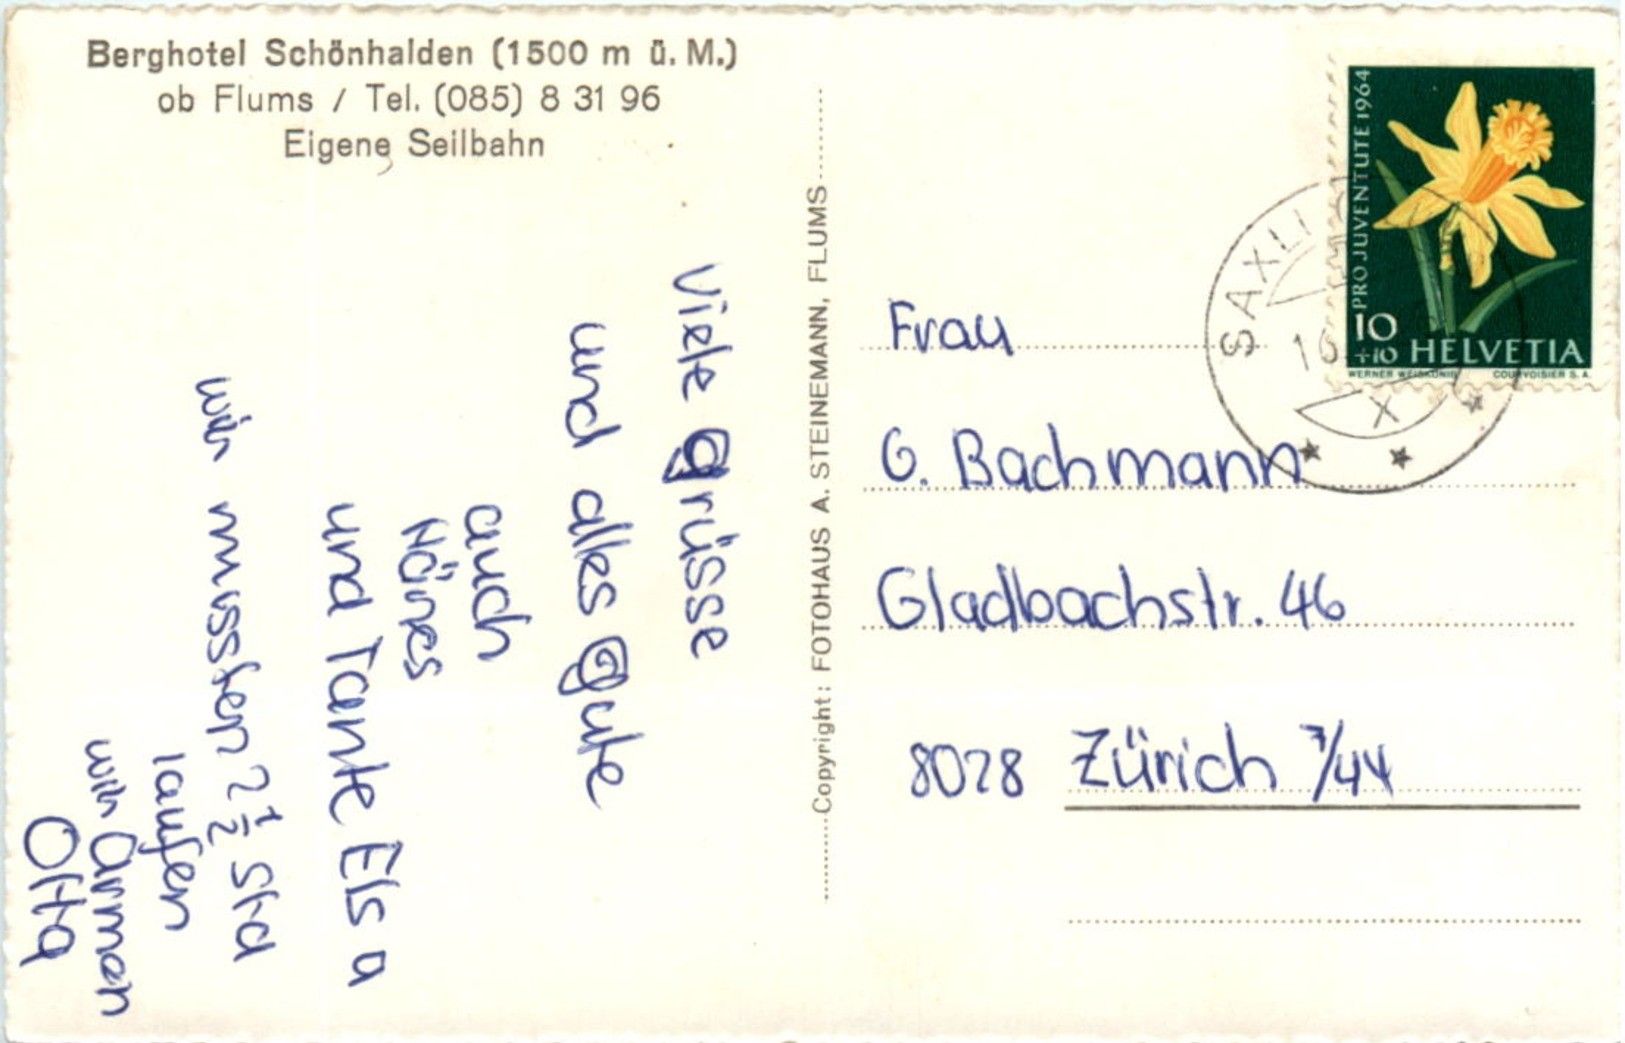 Berghotel Schönhalden (1500 m ü. M.)
ob Flums / Tel. (085) 8 31 96
Eigene Seilbahn
Viele Grüsse
und alles Gute
auch
Nönes
und Tante Elsa
wir mussten 2 1/2 Std
laufen
wir Armen
Otta
Copyright: FOTOHAUS A. STEINEMANN, FLUMS
PRO JUVENTUTE 1964
10
+10 HELVETIA
WERNER WEISKÖNIG COURVOISIER S.A.
SAXLI
16
X
Frau
G. Bachmann
Gladbachstr. 46
8028 Zürich 7/44